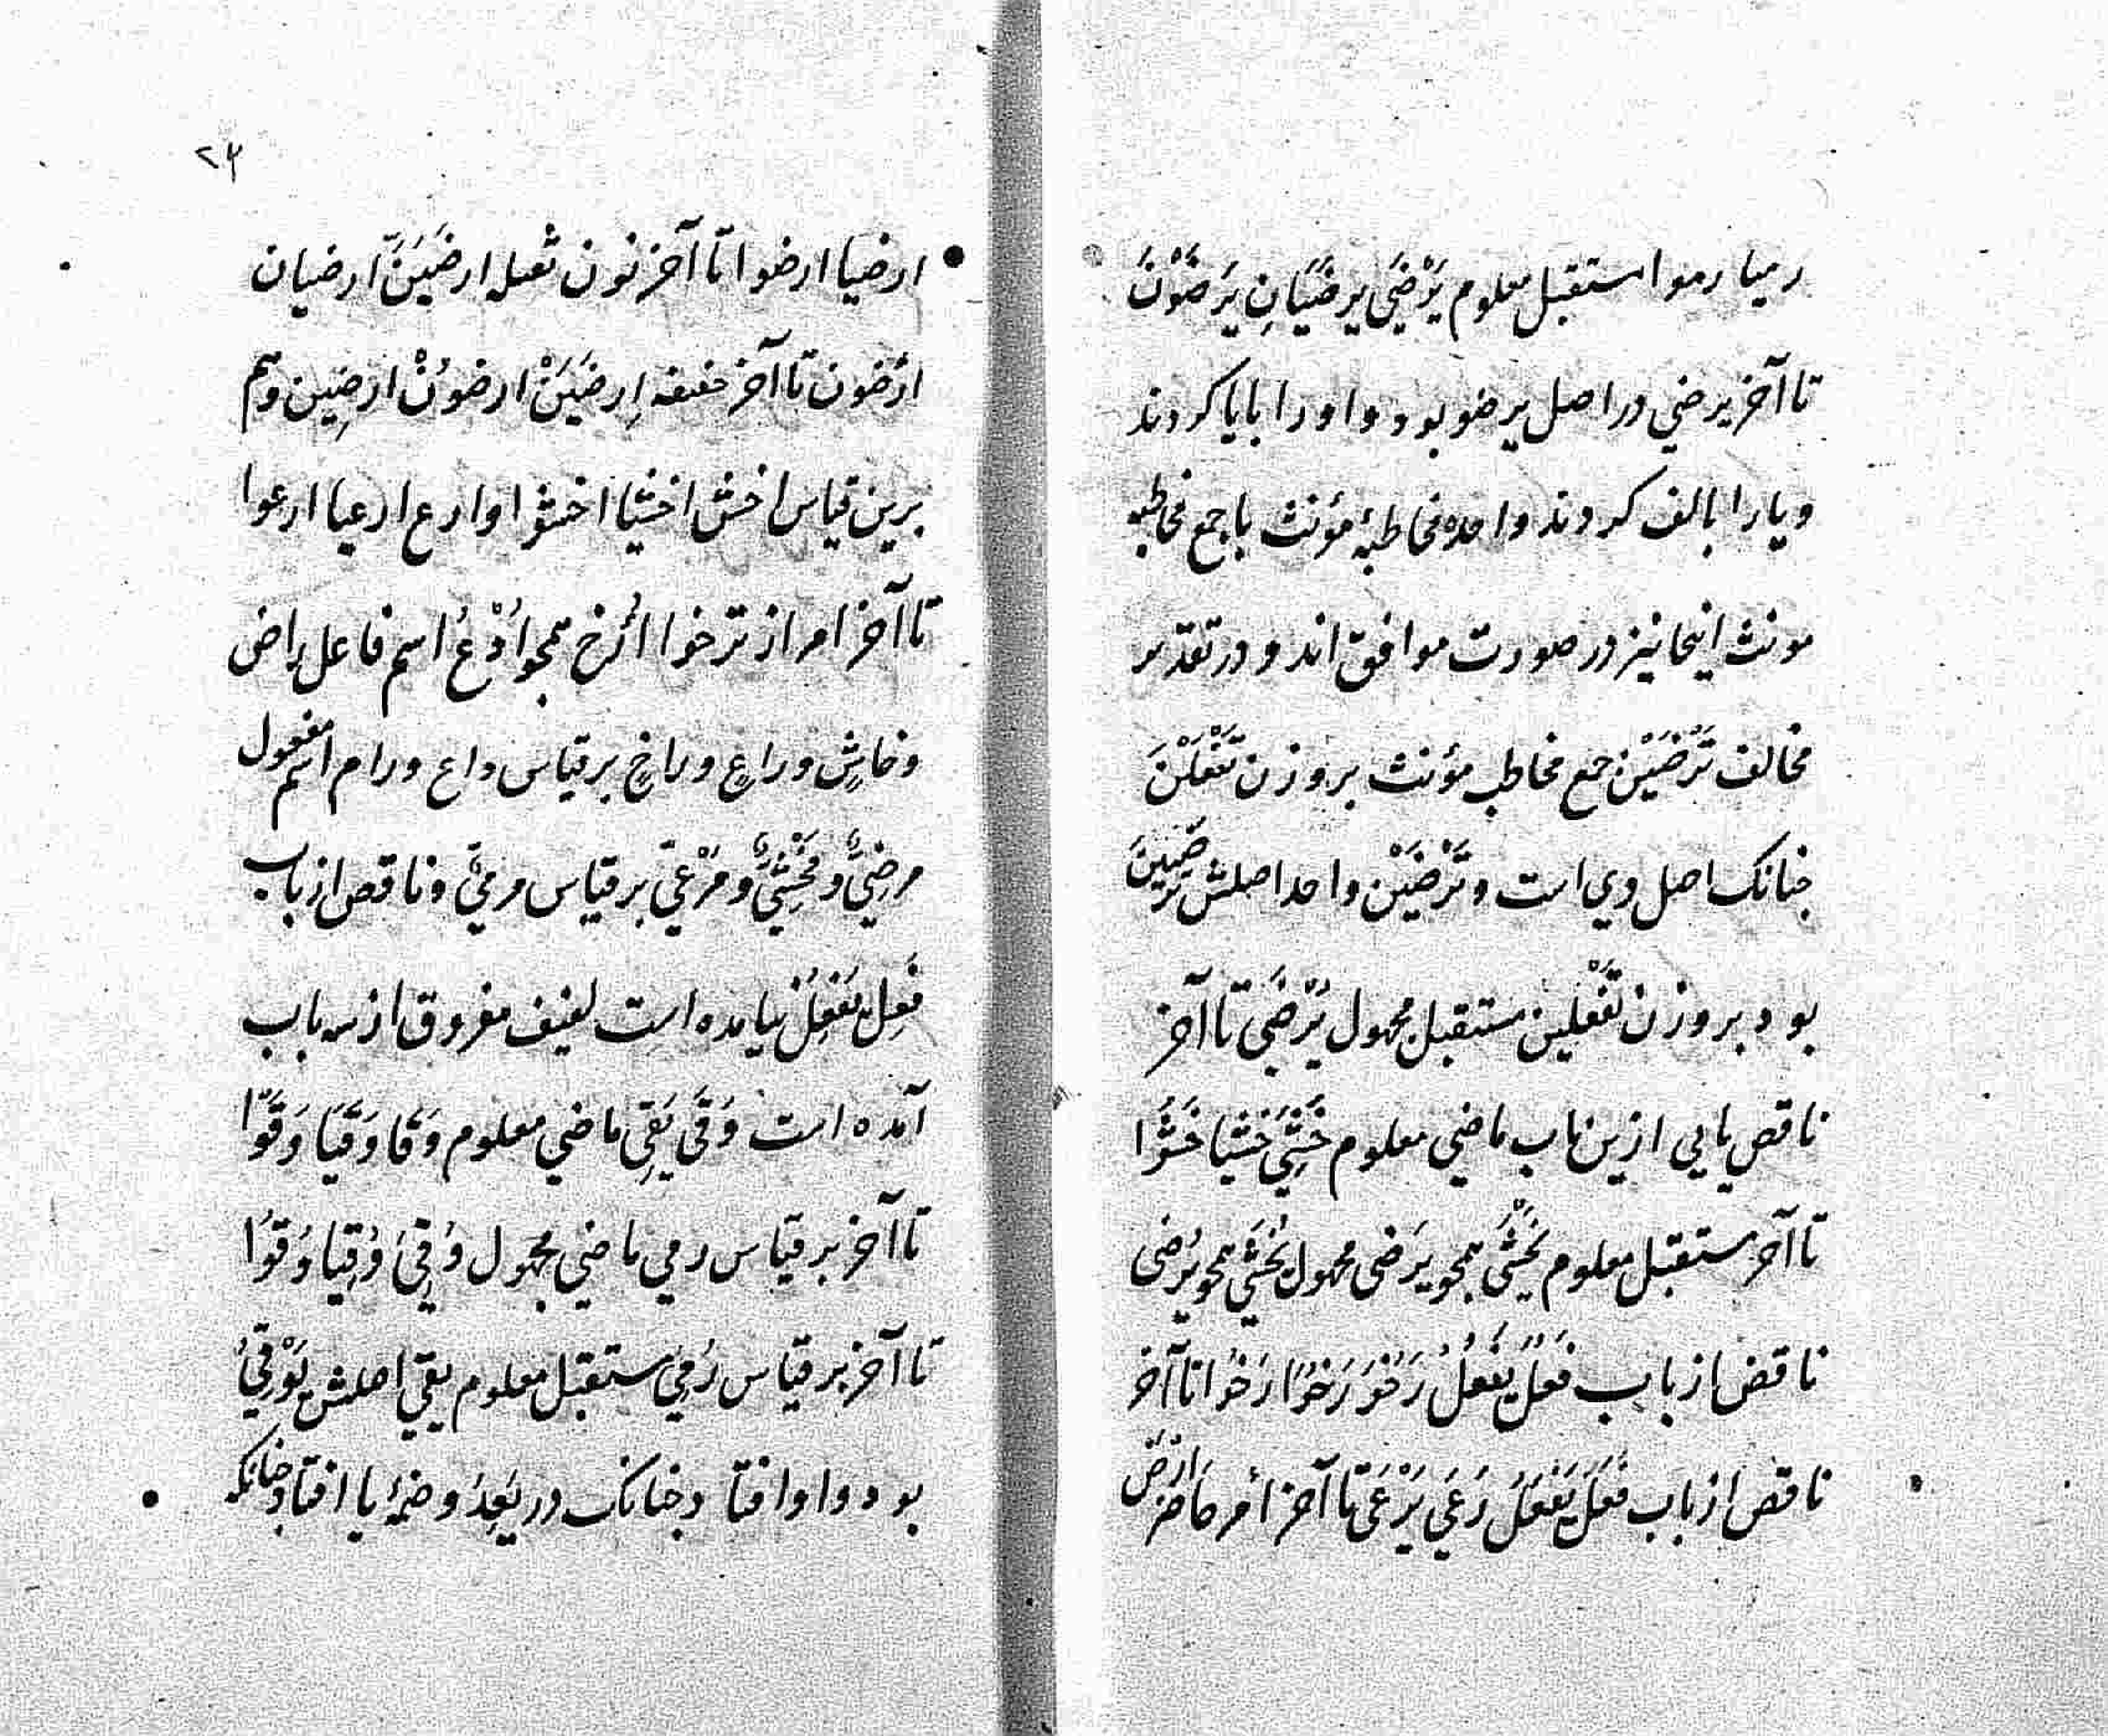 رمیا رموا مستقبل معلوم یَرْضَی یرضَیَانِ یَرضَوْنَ
تا آخر یرضی در اصل یرضو بود واو را بیا کردند
و یا را بالف کردند واحده مخاطبهٔ مؤنث با جمع مخاطبه
مونث اینجا نیز در صورت موافق اند و در تقدیر
مخالف تَرْضَیْنَ جمع مخاطب مؤنث بر وزن تَفْعَلْنَ
جنانک اصل وی است و تَرْضَیْن واحد اصلش ترضَیِینَ
بود بر وزن تَفْعَلین مستقبل مجهول یُرْضَی تا آخر
ناقص یایی ازین باب ماضی معلوم خَشِیَ خشیا خَشُوا
تا آخر مستقبل معلوم یَخْشَی همجو یَرضی مجهول یُخشَی همجو یُرضی
ناقص از باب فَعُلَ یَفْعُلُ رَخُوَ رَخُوَا رَخُوا تا آخر
ناقص از باب فَعَلَ یَفْعَلُ رَعَی یَرْعَی تا آخر أمر حاضر اِرْضَ
۲۳
ارضیا ارضوا تا آخر نون ثقیله ارضَیَنَّ ارضیان
ارضَون تا آخر خفیفه اِرضَیَنْ ارضوُنْ ارضِین و هم
برین قیاس اخش اخشیا اخشوا و ارع ارعیا ارعوا
تا آخر امر از ترخو اُرْخُ همجو اُدْعُ اسم فاعل راض
و خاشٍ و راعٍ و راخٍ بر قیاس داع و رام اسم مفعول
مرضِیٌّ و مَخْشِیٌّ و مَرْعِیّ بر قیاس مرمیّ و ناقص از باب
فَعِلَ یَفْعِلُ نیامده است لفیف مفروق از سه باب
آمده است وَقَی یَقِی ماضی معلوم وَقَا وَقَیَا وَقَوْا
تا آخر بر قیاس رمی ماضی مجهول وُقِیَ وُقِیا وُقُوا
تا آخر بر قیاس رُمِیَ مستقبل معلوم یقی اصلش یَوْقِیُ
بود واو افتاد جنانک در یَعِدُ و ضمهٔ یا افتاد جنانکه